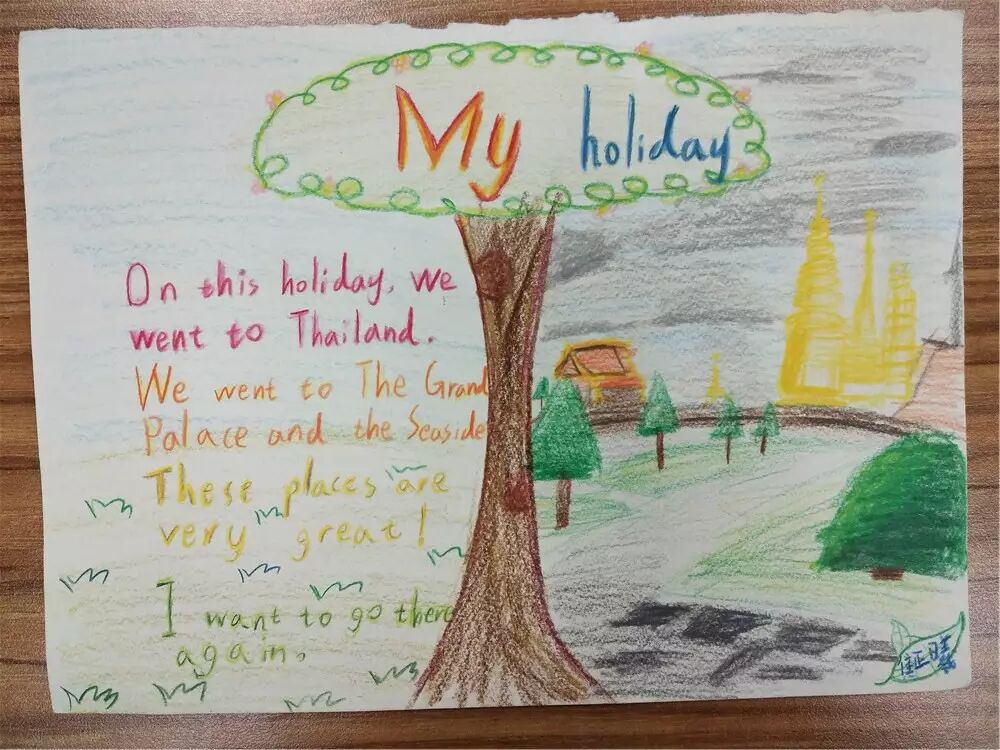 My holiday
On this holiday, we
went to Thailand.
We went to The Grand
Palace and the Seaside
These places are
very great!
I want to go there
again.